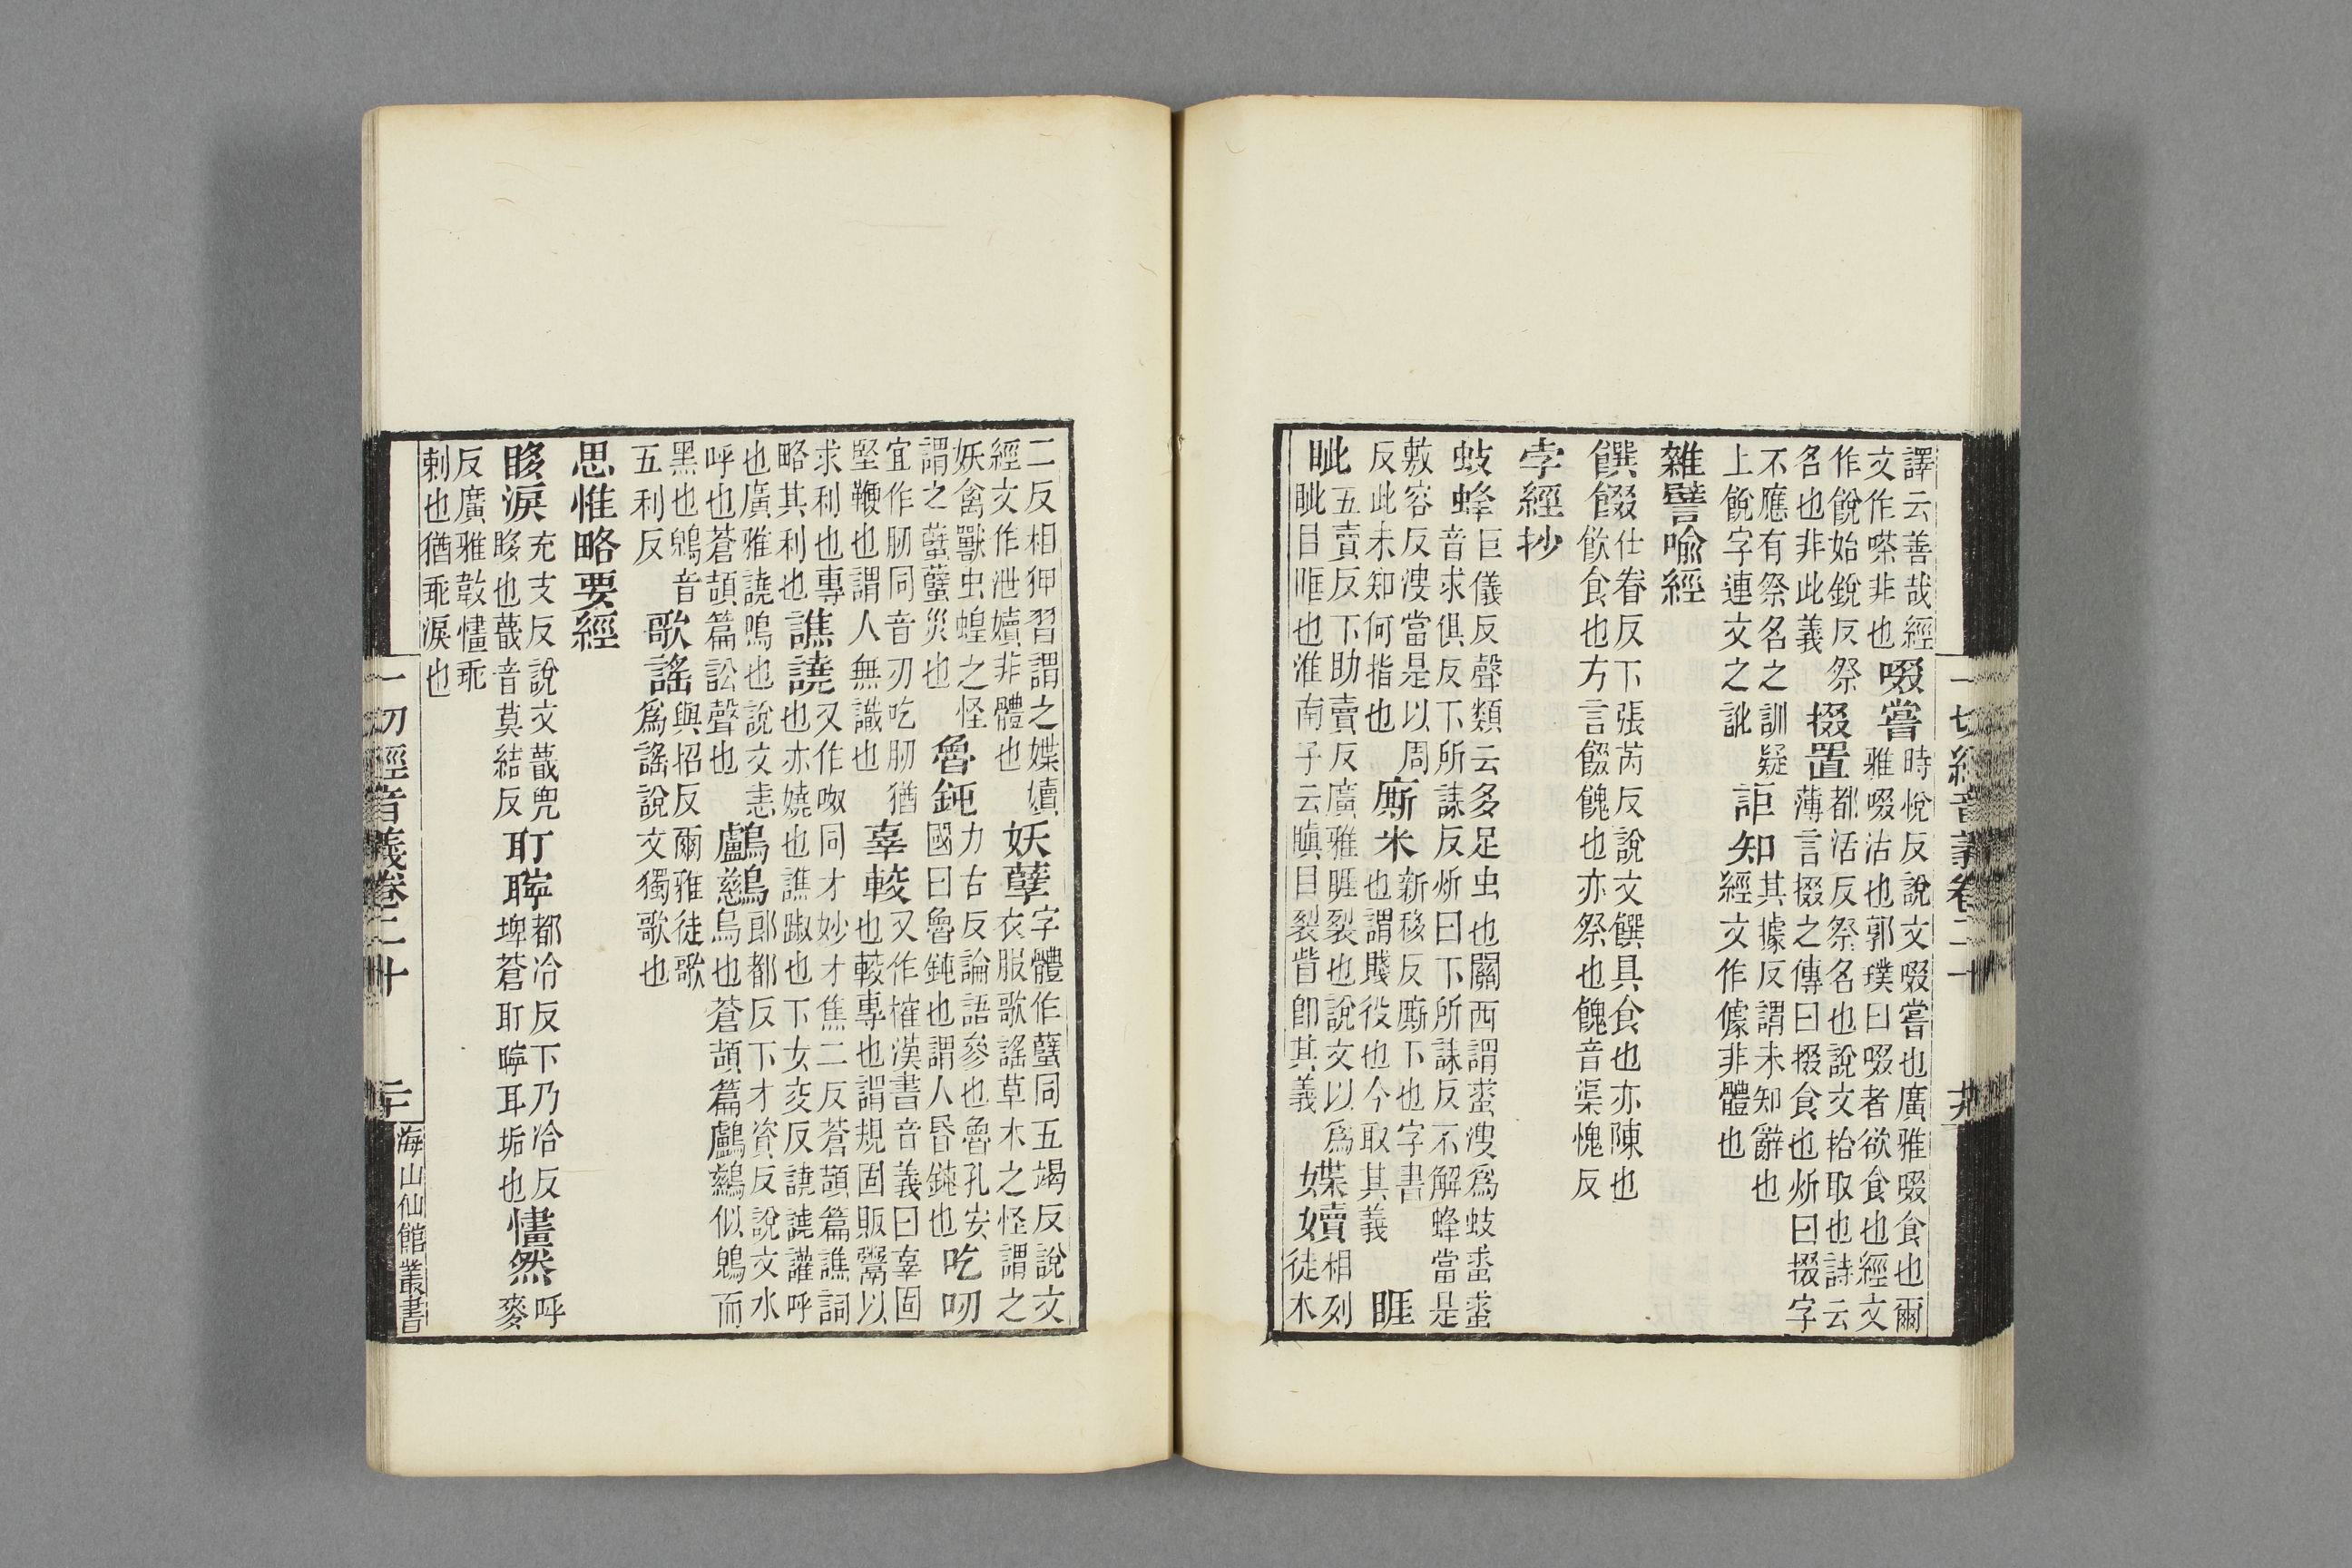 譯云善哉經
文作㗫非也
啜嘗
時悅反說文啜嘗也廣雅啜食也爾
雅啜沽也郭璞曰啜者欲食也經文
作餟始銳反祭
名也非此義
掇置
都活反祭名也說文拾取也詩云
薄言掇之傳曰掇食也炘曰掇字
不應有祭名之訓疑
上餟字連文之訛
詎知
其據反謂未知辭也
經文作懅非體也
雜譬喻經
饌餟
仕眷反下張芮反說文饌具食也亦陳也
飲食也方言餟餽也亦祭也餽音渠愧反
孛經抄
蚑蜂
巨儀反聲類云多足虫也關西謂蛷溲爲蚑蛷蛷
音求俱反下所誄反炘曰下所誄反不解蜂當是
敷容反溲當是以周
反此未知何指也
廝米
新移反廝下也字書
也謂賤役也今取其義
睚
眦
五賣反下助賣反廣雅睚裂也說文以爲
眦目匡也淮南子云瞋目裂眥即其義
媟嬻
相列
徒木
二反相狎習謂之媟嬻
經文作泄嬻非體也
妖孽
字體作蠥同五竭反說文
衣服歌謠草木之怪謂之
妖禽獸虫蝗之怪
謂之蠥蠥災也
魯鈍
力古反論語參也魯孔安
國曰魯鈍也謂人昬鈍也
吃吲
宜作肕同音刃吃肕猶
堅鞕也謂人無識也
辜較
又作榷漢書音義曰辜固
也較專也謂規固販鬻以
求利也專
略其利也
譙譊
又作呶同才妙才焦二反蒼頡篇譙詞
也亦嬈也譙踧也下女交反譊譊讙呼
也廣雅譊鳴也說文恚
呼也蒼頡篇訟聲也
鸕鷀
郎都反下才資反說文水
烏也蒼頡篇鸕鷀似鶂而
黑也鶂音
五利反
歌謠
與招反爾雅徒歌
爲謠說文獨歌也
思惟略要經
眵淚
充支反說文蕞兜
眵也蕞音莫結反
耵聹
都冷反下乃冷反
埤蒼耵聹耳垢也
㦎然
呼
麥
反廣雅㪉㦎乖
剌也猶乖淚也
一切經音義卷二十
二十
海山仙館叢書